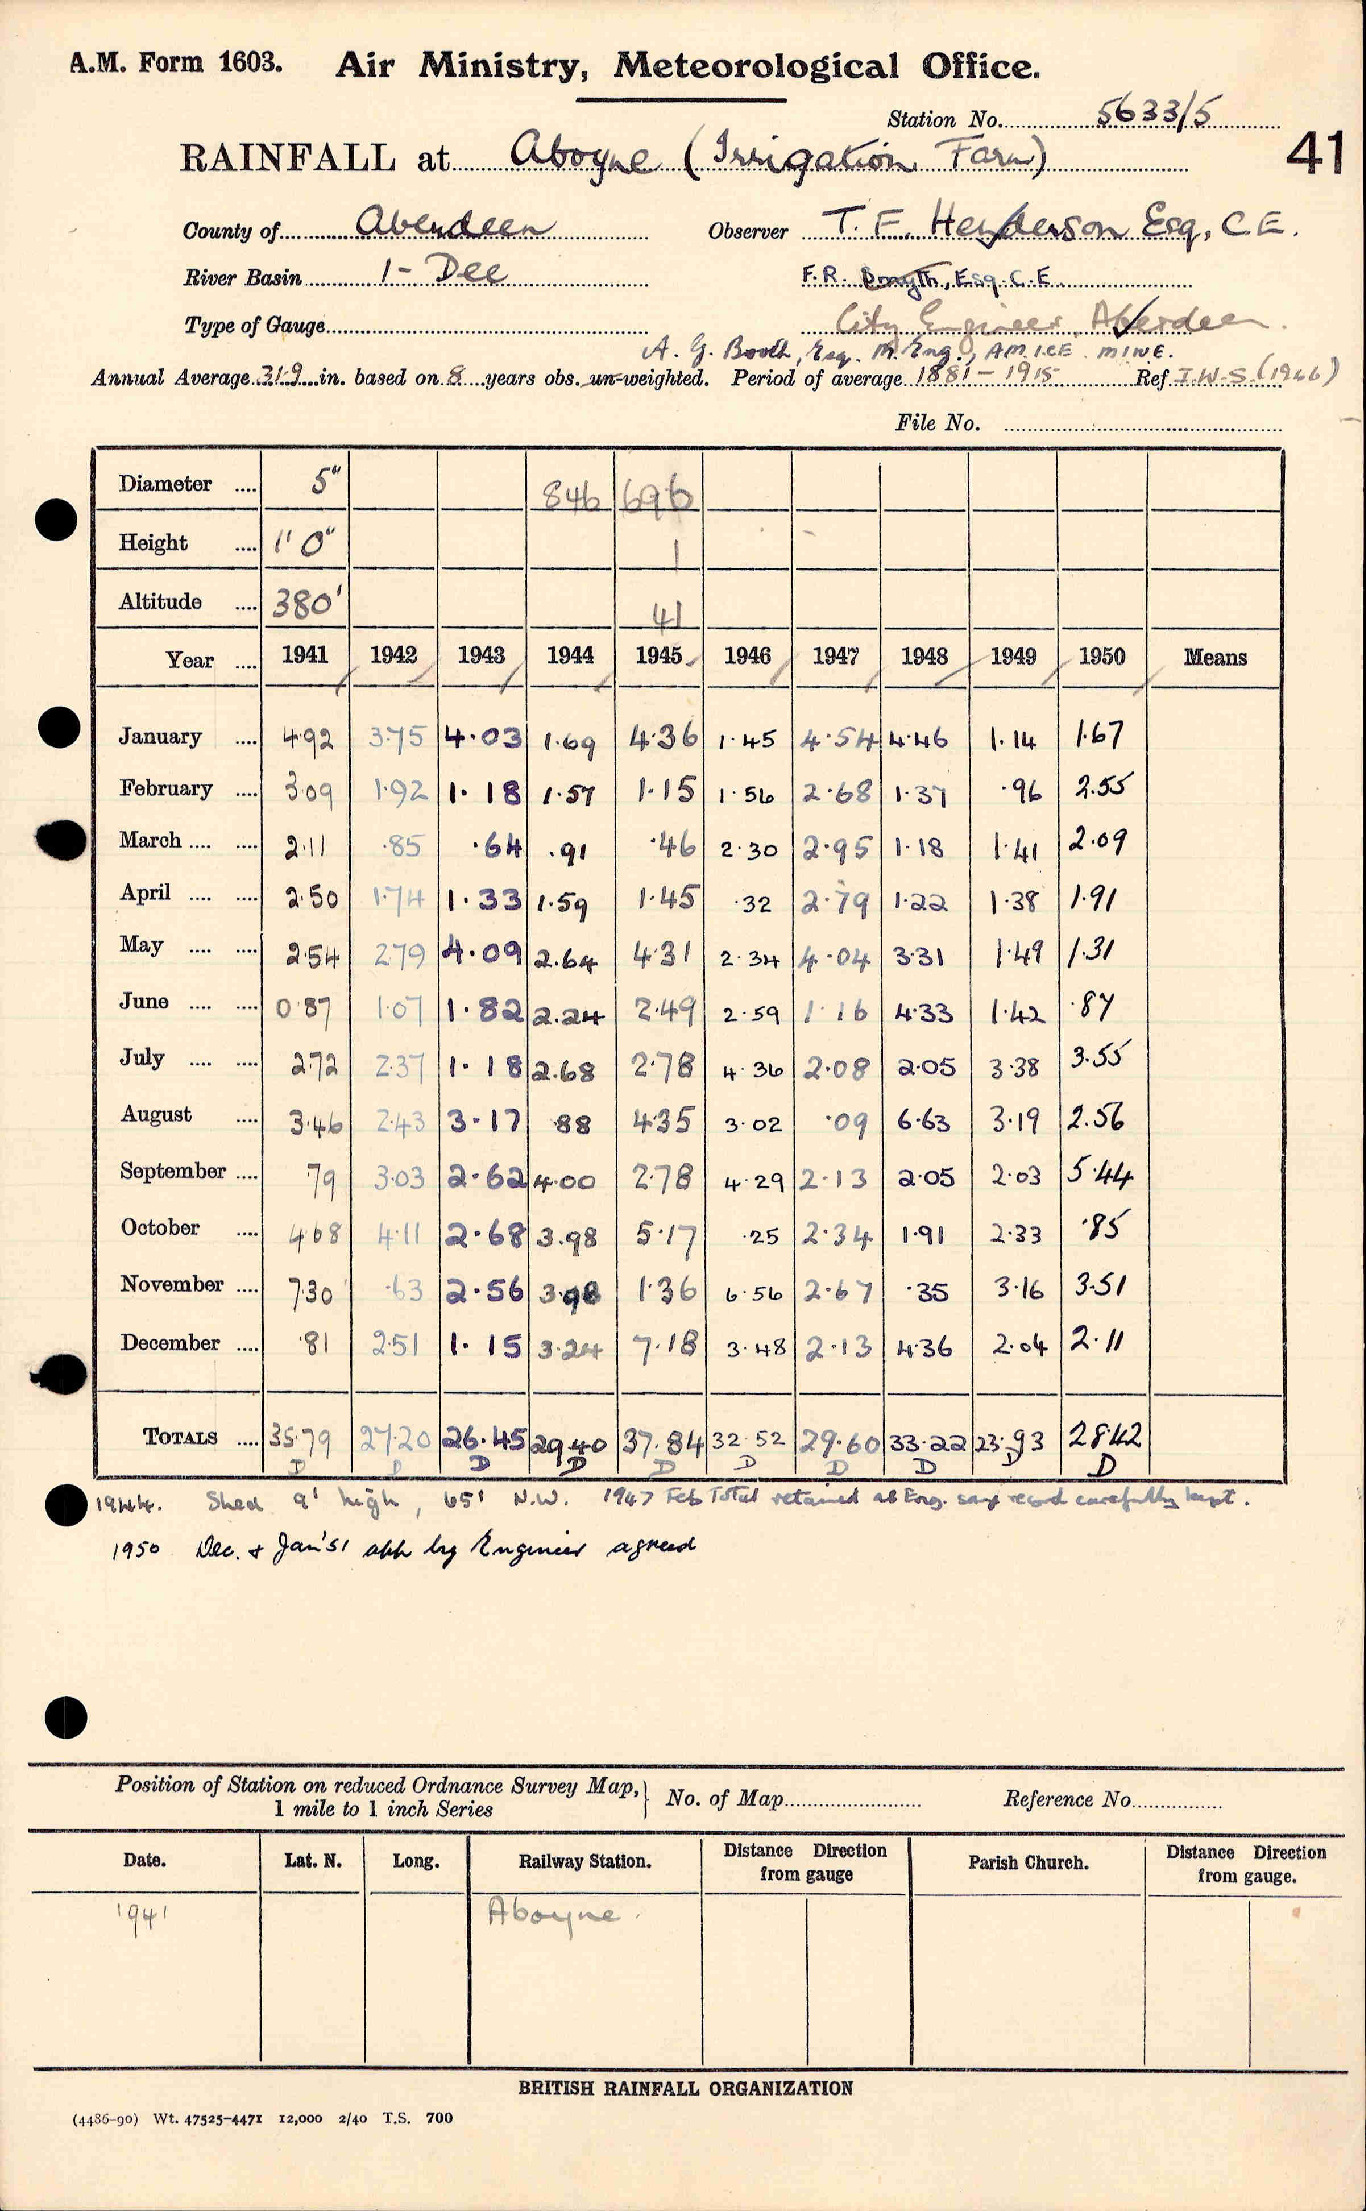 A.M. Form 1603. Air Ministry, Meteorological Office.
Station No. 5633/5
41
RAINFALL at Aboyne (Irrigation Farm)
County of Aberdeen Observer T. F. Henderson Esq, C.E.
River Basin 1 - Dee F.R. Smyth, Esq. C.E.
Type of Gauge City Engineer, Aberdeen.
A. G. Booth, Esq. M. Eng., A.M.I.C.E. M.I.W.E.
Annual Average 31.9 in. based on 8 years obs. un-weighted. Period of average 1881 - 1915 Ref I.W.S. (1946)
File No.
Diameter 5" 846 696
Height 1' 0" 1
Altitude 380' 41
Year 1941 1942 1943 1944 1945 1946 1947 1948 1949 1950 Means
January 4.92 3.75 4.03 1.69 4.36 1.45 4.54 4.46 1.14 1.67
February 3.09 1.92 1.18 1.57 1.15 1.56 2.68 1.37 .96 2.55
March 2.11 .85 .64 .91 .46 2.30 2.95 1.18 1.41 2.09
April 2.50 1.74 1.33 1.59 1.45 .32 2.79 1.22 1.38 1.91
May 2.54 2.79 4.09 2.64 4.31 2.34 4.04 3.31 1.49 1.31
June 0.87 1.07 1.82 2.24 2.49 2.59 1.16 4.33 1.42 .87
July 2.72 2.37 1.18 2.68 2.78 4.36 2.08 2.05 3.38 3.55
August 3.46 2.43 3.17 .88 4.35 3.02 .09 6.63 3.19 2.56
September .79 3.03 2.62 4.00 2.78 4.29 2.13 2.05 2.03 5.44
October 4.68 4.11 2.68 3.98 5.17 .25 2.34 1.91 2.33 .85
November 7.30 .63 2.56 3.98 1.36 6.56 2.67 .35 3.16 3.51
December .81 2.51 1.15 3.24 7.18 3.48 2.13 4.36 2.04 2.11
TOTALS 35.79 27.20 26.45 29.40 37.84 32.52 29.60 33.22 23.93 28.42
D D D D D D D D D D
1944. Shed 9' high, 65' N.W. 1947 Feb Total retained as Eng. says record carefully kept.
1950 Dec. & Jan '51 app by Engineer agreed
Position of Station on reduced Ordnance Survey Map, 1 mile to 1 inch Series No. of Map Reference No
Date. Lat. N. Long. Railway Station. Distance Direction from gauge Parish Church. Distance Direction from gauge.
1941 Aboyne.
BRITISH RAINFALL ORGANIZATION
(4486-90) Wt. 47525-4471 12,000 2/40 T.S. 700